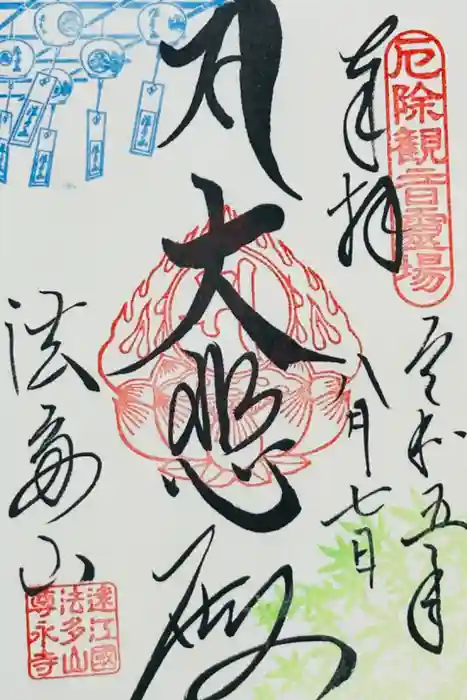 厄除観音靈場
奉拝
令和五年
八月七日
大悲殿
法多山
遠江國
法多山
尊永寺